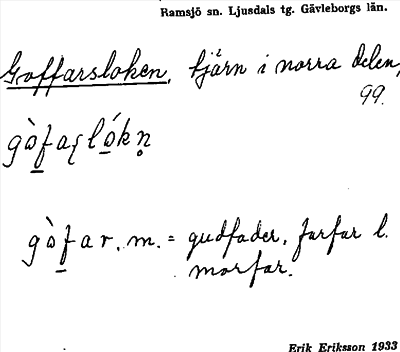 Ramsjö sn. Ljusdals tg. Gävleborgs län.
Goffarsloken, tjärn i norra delen,
99.
gòfaꞩlókn̥
gòfar, m. = gudfader, farfar l.
morfar.
Erik Eriksson 1933